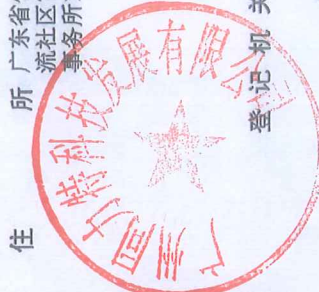 住 所 广东省
流社区
事务所
登记机关
力特科技发展有限公司